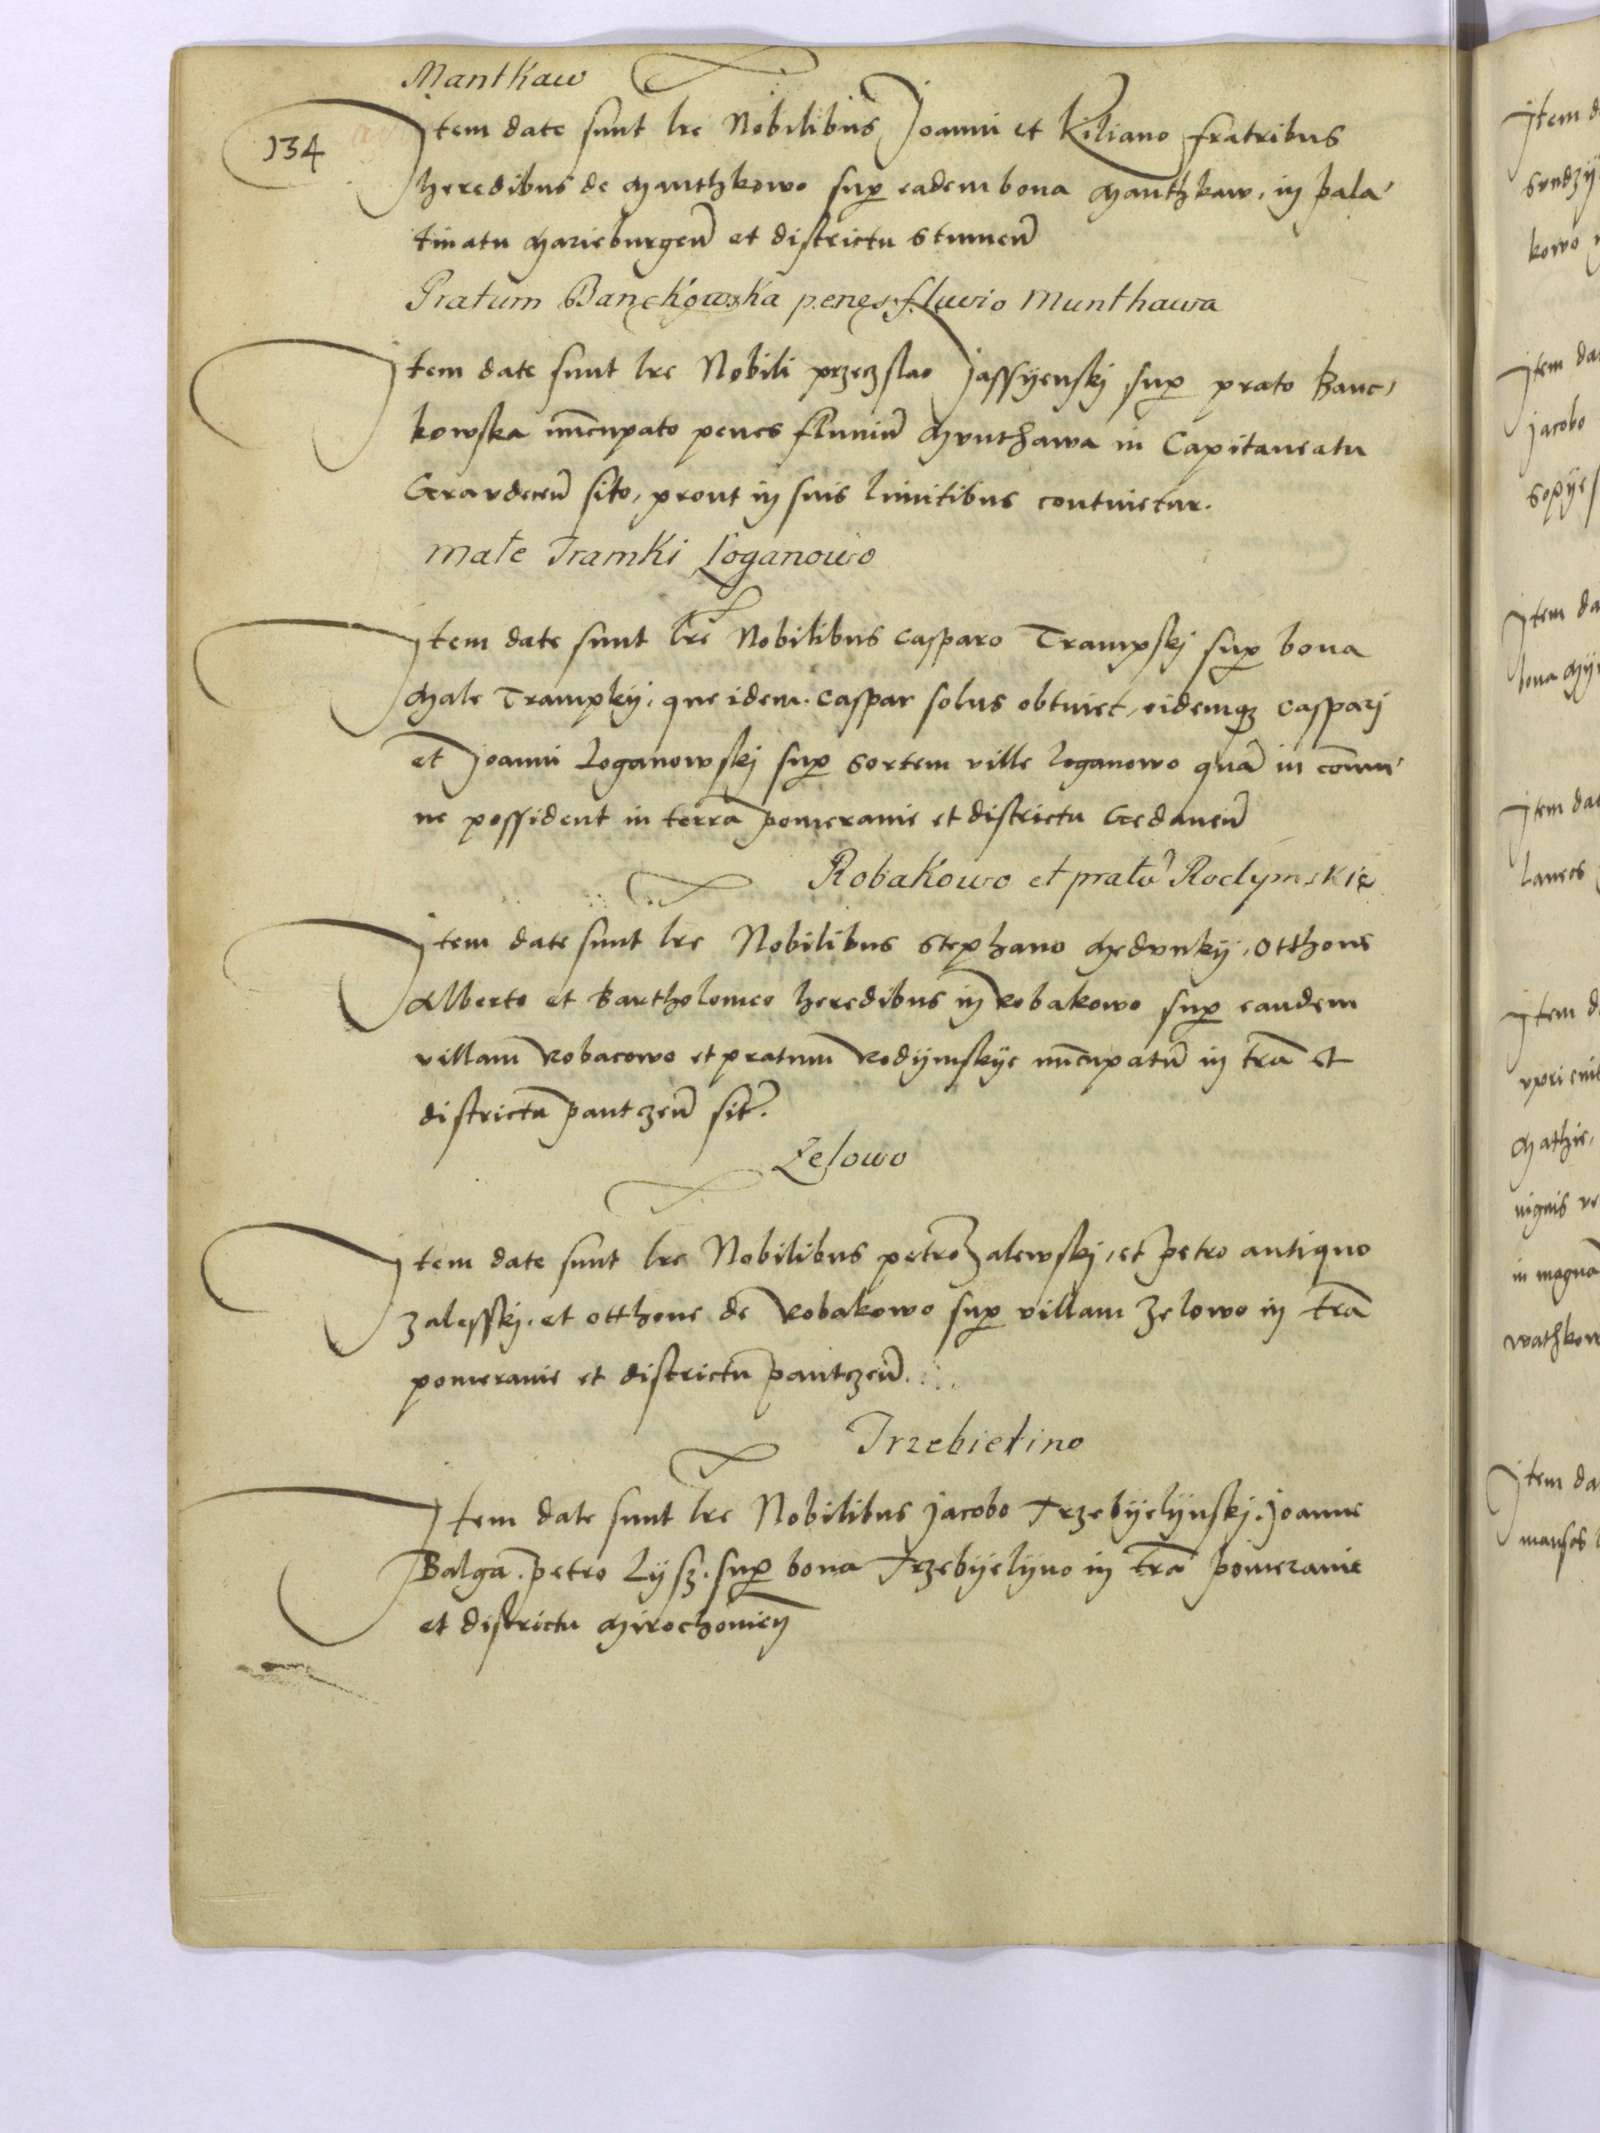 Mantkaw
134
Item date sunt lre Nobilibus Joanni et Kiliano fratribus
heredibus de Manthkowo sup eadem bona Manthkaw, in pala
tinatu Marieburgeñ et districtu Stumeñ
Pratum Banckowska penes fluvio Munthawa
Item date sunt lre Nobili przeczslao Jassyenskj sup prato Banc,
kowska nūcupato penes fluuiū Mvnthawa in Capitaneatu
Gravdeceñ sito, prout in suis limitibus continetur.
Małe Tramki Łoganowo
Item date sunt lre Nobilibus Casparo Trampskj sup bona
Male Trampkij, que idem. Caspar solus obtinet, eidemqz Casparj
et Joanni Loganowskj sup sortem ville Loganowo quā in cōmu
ne possident in terra pomeranie et districtu Gedaneñ
Robakowo et pratū Rodymskie
Item date sunt lre Nobilibus Stephano Medvnkij, Otthone
Alberto et Bartholomeo heredibus in Robakowo sup eandem
villam Robacowo et pratum Rodijmskije nūcupatū in trā et
districtu pautczeñ sit.
Zelowo
Item date sunt lre Nobilibus petro Zalewskj, et petro antiquo
Zalesskj. et Otthone de Robakowo sup villam Zelowo in trā
pomeranie et districtu pautczeñ
Trzebielino
Item date sunt lre Nobilibus Jacobo Trzebijelijnskj. Joanne
Balga. petro Lysz. sup bona Trzebijelijno in trā pomeranie
et districtu Mirochowień
Item d
kowo
Item da
Jacobo
Item da
bona
Item dat
laneos
Item d
Mathie,
in magna
wathkow
Item da
mansos